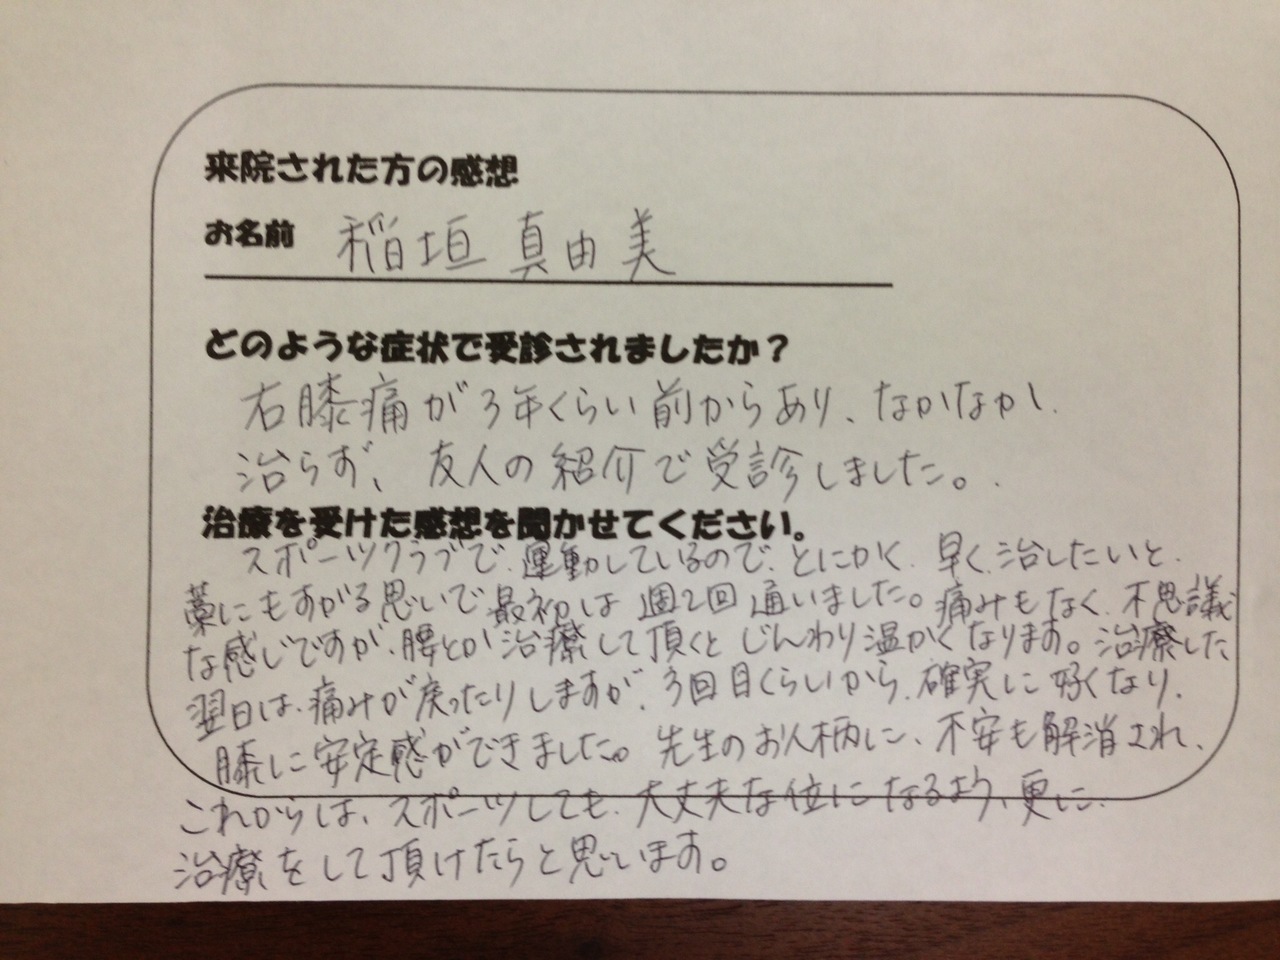 来院された方の感想
お名前 稲垣 真由美
どのような症状で受診されましたか？
右膝痛が3年くらい前からあり、なかなか
治らず、友人の紹介で受診しました。
治療を受けた感想を聞かせてください。
スポーツクラブで、運動しているので、とにかく、早く、治したいと、
藁にもすがる思いで最初は週2回通いました。痛みもなく、不思議
な感じですが、腰とか治療して頂くとじんわり温かくなります。治療した
翌日は、痛みが戻ったりしますが、3回目くらいから、確実に好くなり、
膝に安定感ができました。先生のお人柄に、不安も解消され、
これからは、スポーツしても、大丈夫な位になるよう、更に、
治療をして頂けたらと思います。